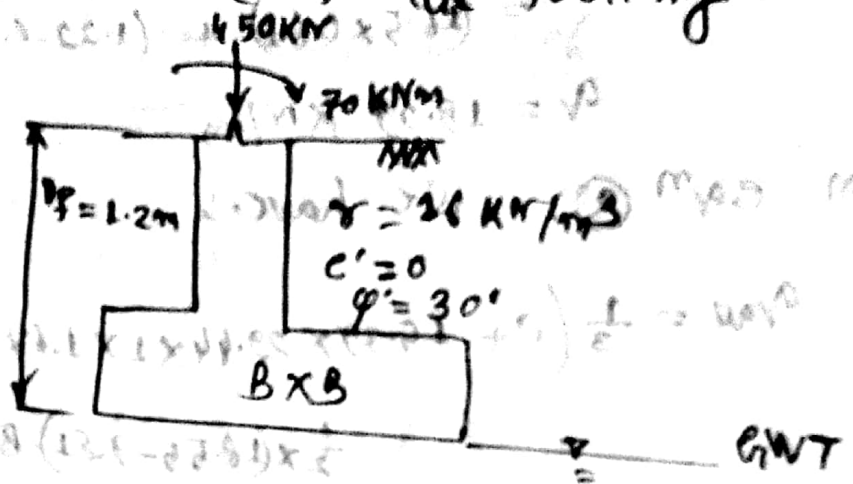 450KN
70 KNm
Df = 1.2m
γ = 16 KN/m3
c' = 0
φ' = 30°
B x B
GWT